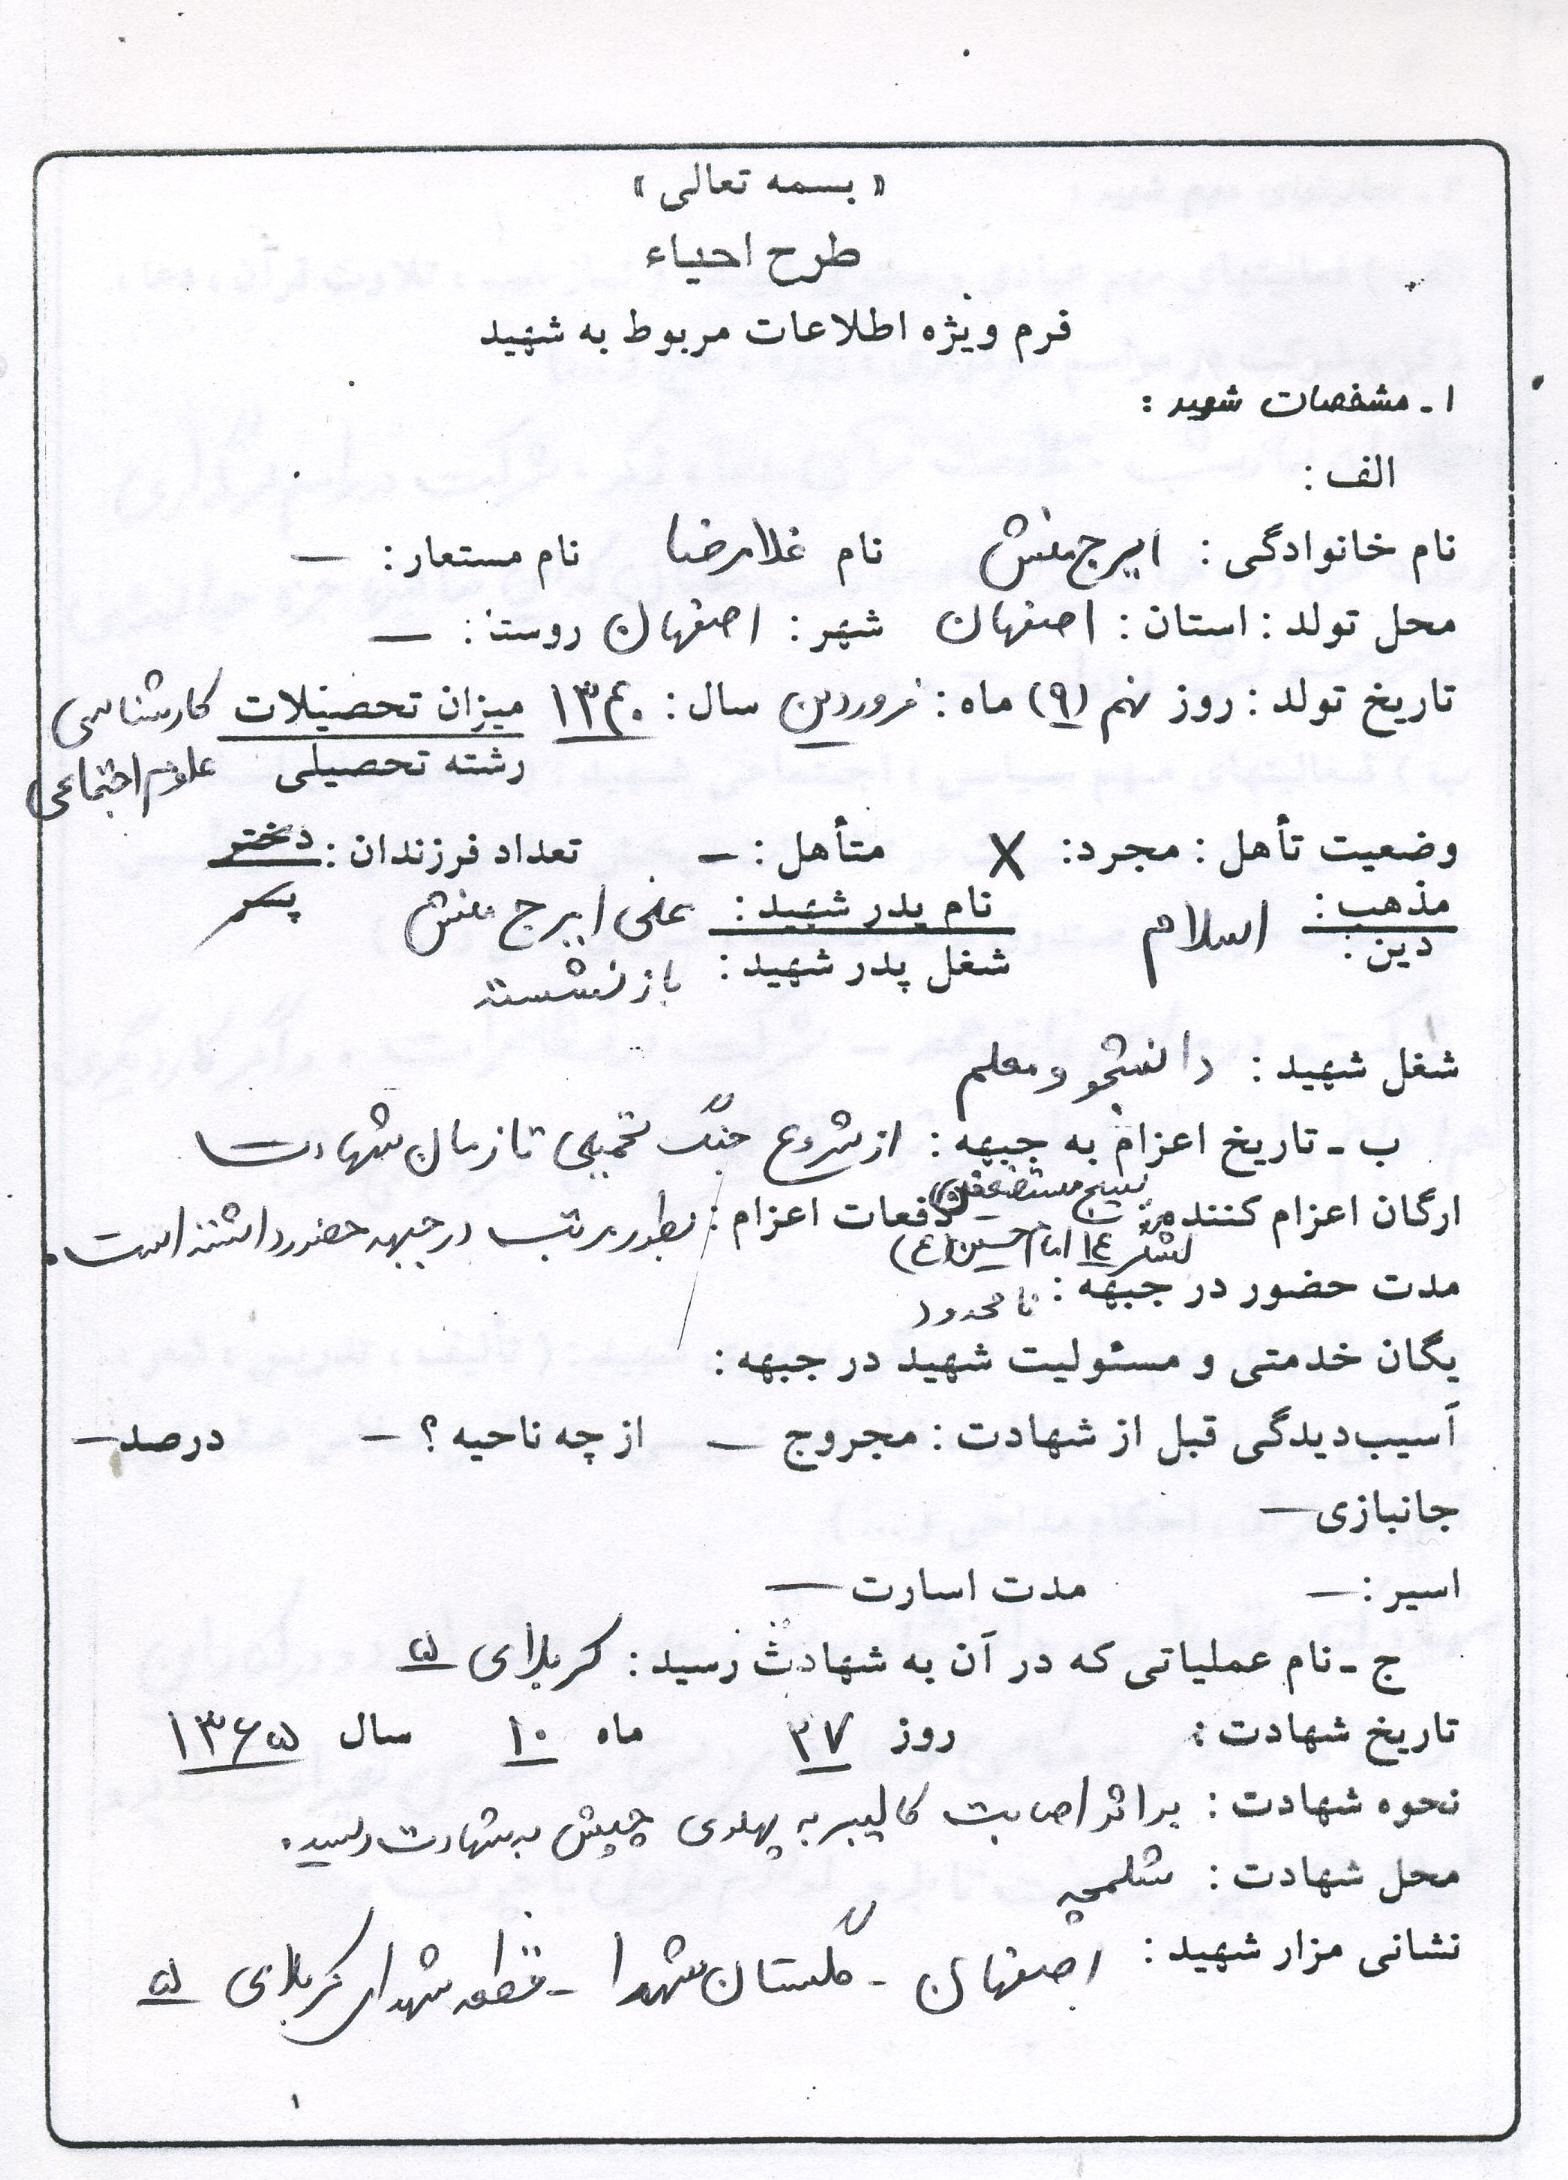 « بسمه تعالی »
طرح احیاء
فرم ویژه اطلاعات مربوط به شهید
۱ ـ مشخصات شهید :
الف :
نام خانوادگی : ایرج منش نام غلامرضا نام مستعار : —
محل تولد : استان : اصفهان شهر : اصفهان روستا : —
تاریخ تولد : روز نهم (۹) ماه : فروردین سال : ۱۳۴۰ میزان تحصیلات کارشناسی
رشته تحصیلی علوم اجتماعی
وضعیت تأهل : مجرد : X متأهل : — تعداد فرزندان : دختر
پسر
مذهب : اسلام نام پدر شهید : علی ایرج منش
دین : شغل پدر شهید : بازنشسته
شغل شهید : دانشجو و معلم
ب ـ تاریخ اعزام به جبهه : از شروع جنگ تحمیلی تا زمان شهادت
ارگان اعزام کننده : بسیج مستضعفین دفعات اعزام : بطور مرتب در جبهه حضور داشته است.
لشکر ۱۴ امام حسین (ع)
مدت حضور در جبهه : نامحدود
یگان خدمتی و مسئولیت شهید در جبهه :
آسیب‌دیدگی قبل از شهادت : مجروح — از چه ناحیه ؟ — درصد —
جانبازی —
اسیر : — مدت اسارت —
ج ـ نام عملیاتی که در آن به شهادت رسید : کربلای ۵
تاریخ شهادت : روز ۲۷ ماه ۱۰ سال ۱۳۶۵
نحوه شهادت : براثر اصابت کالیبر به پهلوی چپش به شهادت رسید.
محل شهادت : شلمچه
نشانی مزار شهید : اصفهان - گلستان شهدا - قطعه شهدای کربلای ۵
۱